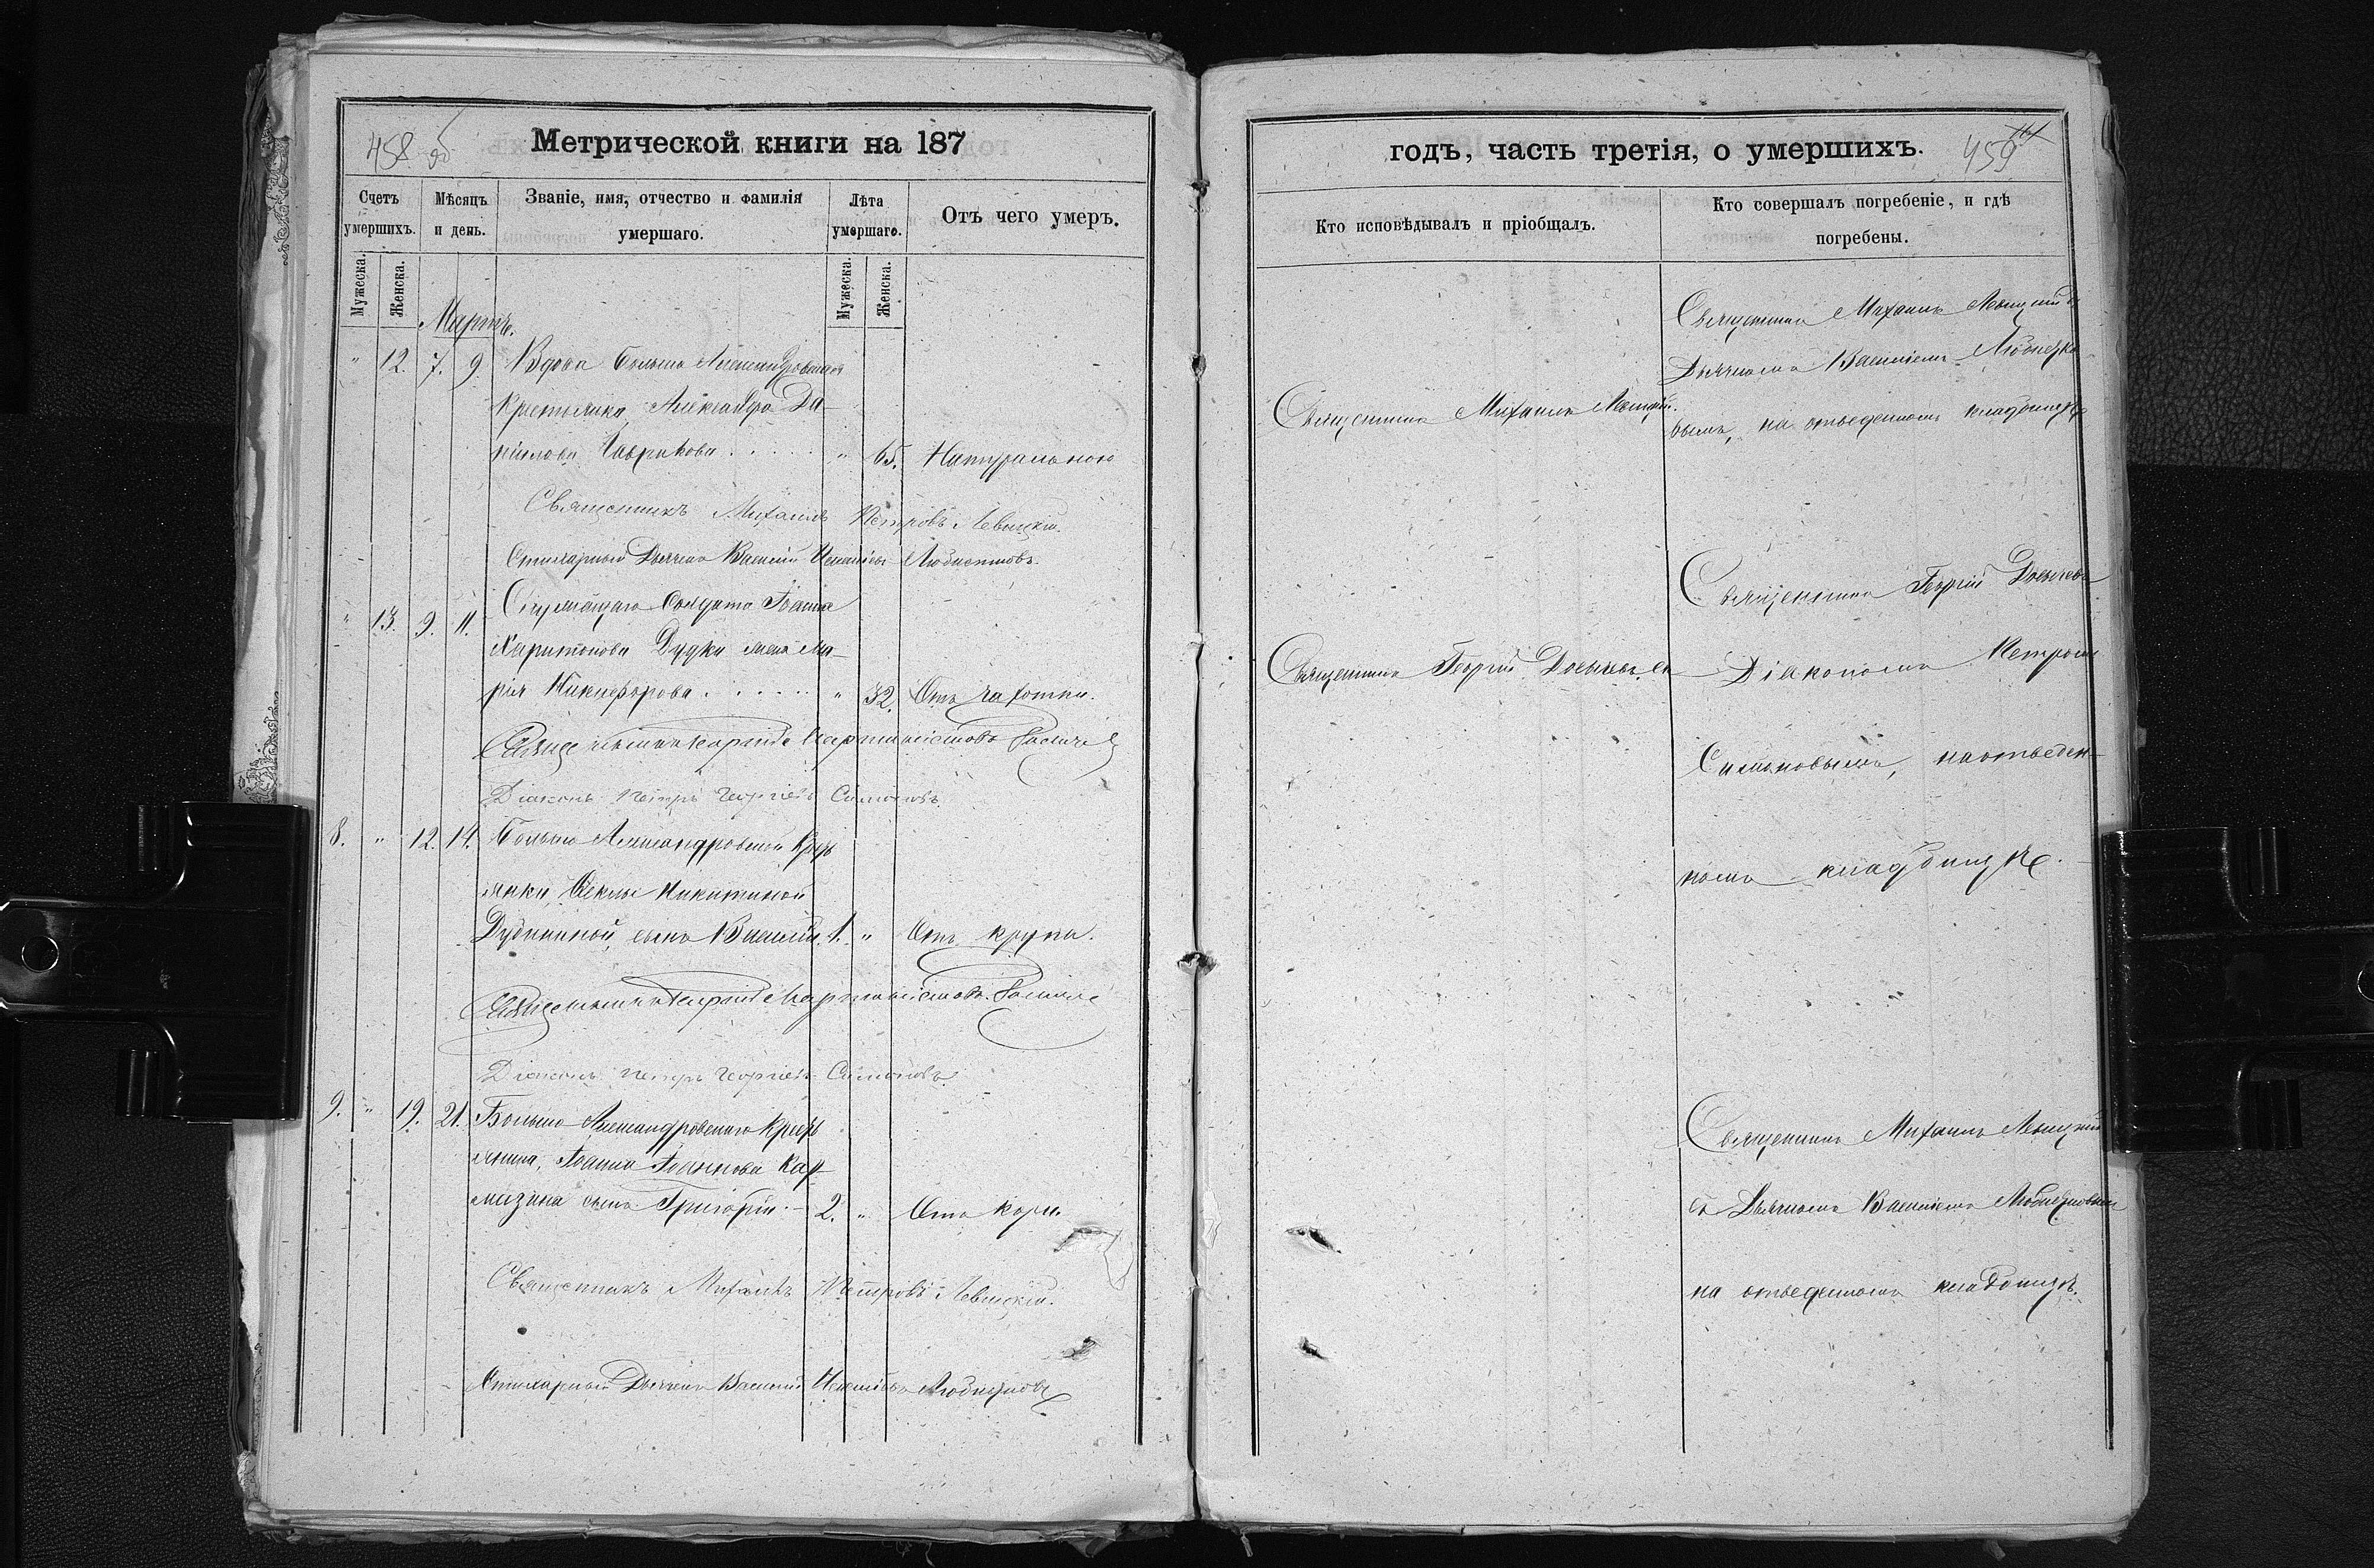 458 об
Метрической книги на 187
Счетъ умершихъ.
Мѣсяцъ и день.
Званіе, имя, отчество и фамилія умершаго.
Лѣта умершаго.
Отъ чего умеръ.
Мужеска.
Женска.
Мужеска.
Женска.
Мартъ.
" 12. 7. 9. Вдова Больше Александровская
Крестьянка Александра Да-
нилова Гаврикова . . . . . " 65. Натуральною
Священникъ Михаилъ Петровъ Левицкій.
Стихарный Дьячекъ Василій Любистковъ.
" 13. 9. 11. Служащаго Солдата Іоанна
Харитонова Дудки жена Ма-
рія Никифорова . . . . . " 32. Отъ чахотки.
Священникъ Георгій
Діаконъ Петръ Георгіевъ Симоновъ.
8. " 12. 14. Больше Александровской Крест
янки Ѳеклы Никитиной
Дубининой сынъ Василій. 1. " Отъ крупа.
Священникъ Георгій
Діаконъ Петръ Георгіевъ Симоновъ.
9. " 19. 21. Больше Александровскаго Крест
янина, Іоанна Іоаннова Кар-
мазина сынъ Григорій. - 2. " Отъ кори.
Священникъ Михаилъ Петровъ Левицкій.
Стихарный Дьячекъ Василій Любистковъ
годъ, часть третія, о умершихъ.
459
Кто исповѣдывалъ и пріобщалъ.
Кто совершалъ погребеніе, и гдѣ погребены.
Священникъ Михаилъ Левицкій съ
Дьячкомъ Василіемъ Любистко-
Священникъ Михаилъ Левицкій.
вымъ, на отведенномъ кладбищѣ
Священникъ Георгій
Священникъ Георгій съ
Діакономъ Петромъ
Симоновымъ, на отведен-
номъ кладбищѣ.
Священникъ Михаилъ Левицкій
съ Дьячкомъ Василіемъ Любистковымъ
на отведенномъ кладбищѣ.